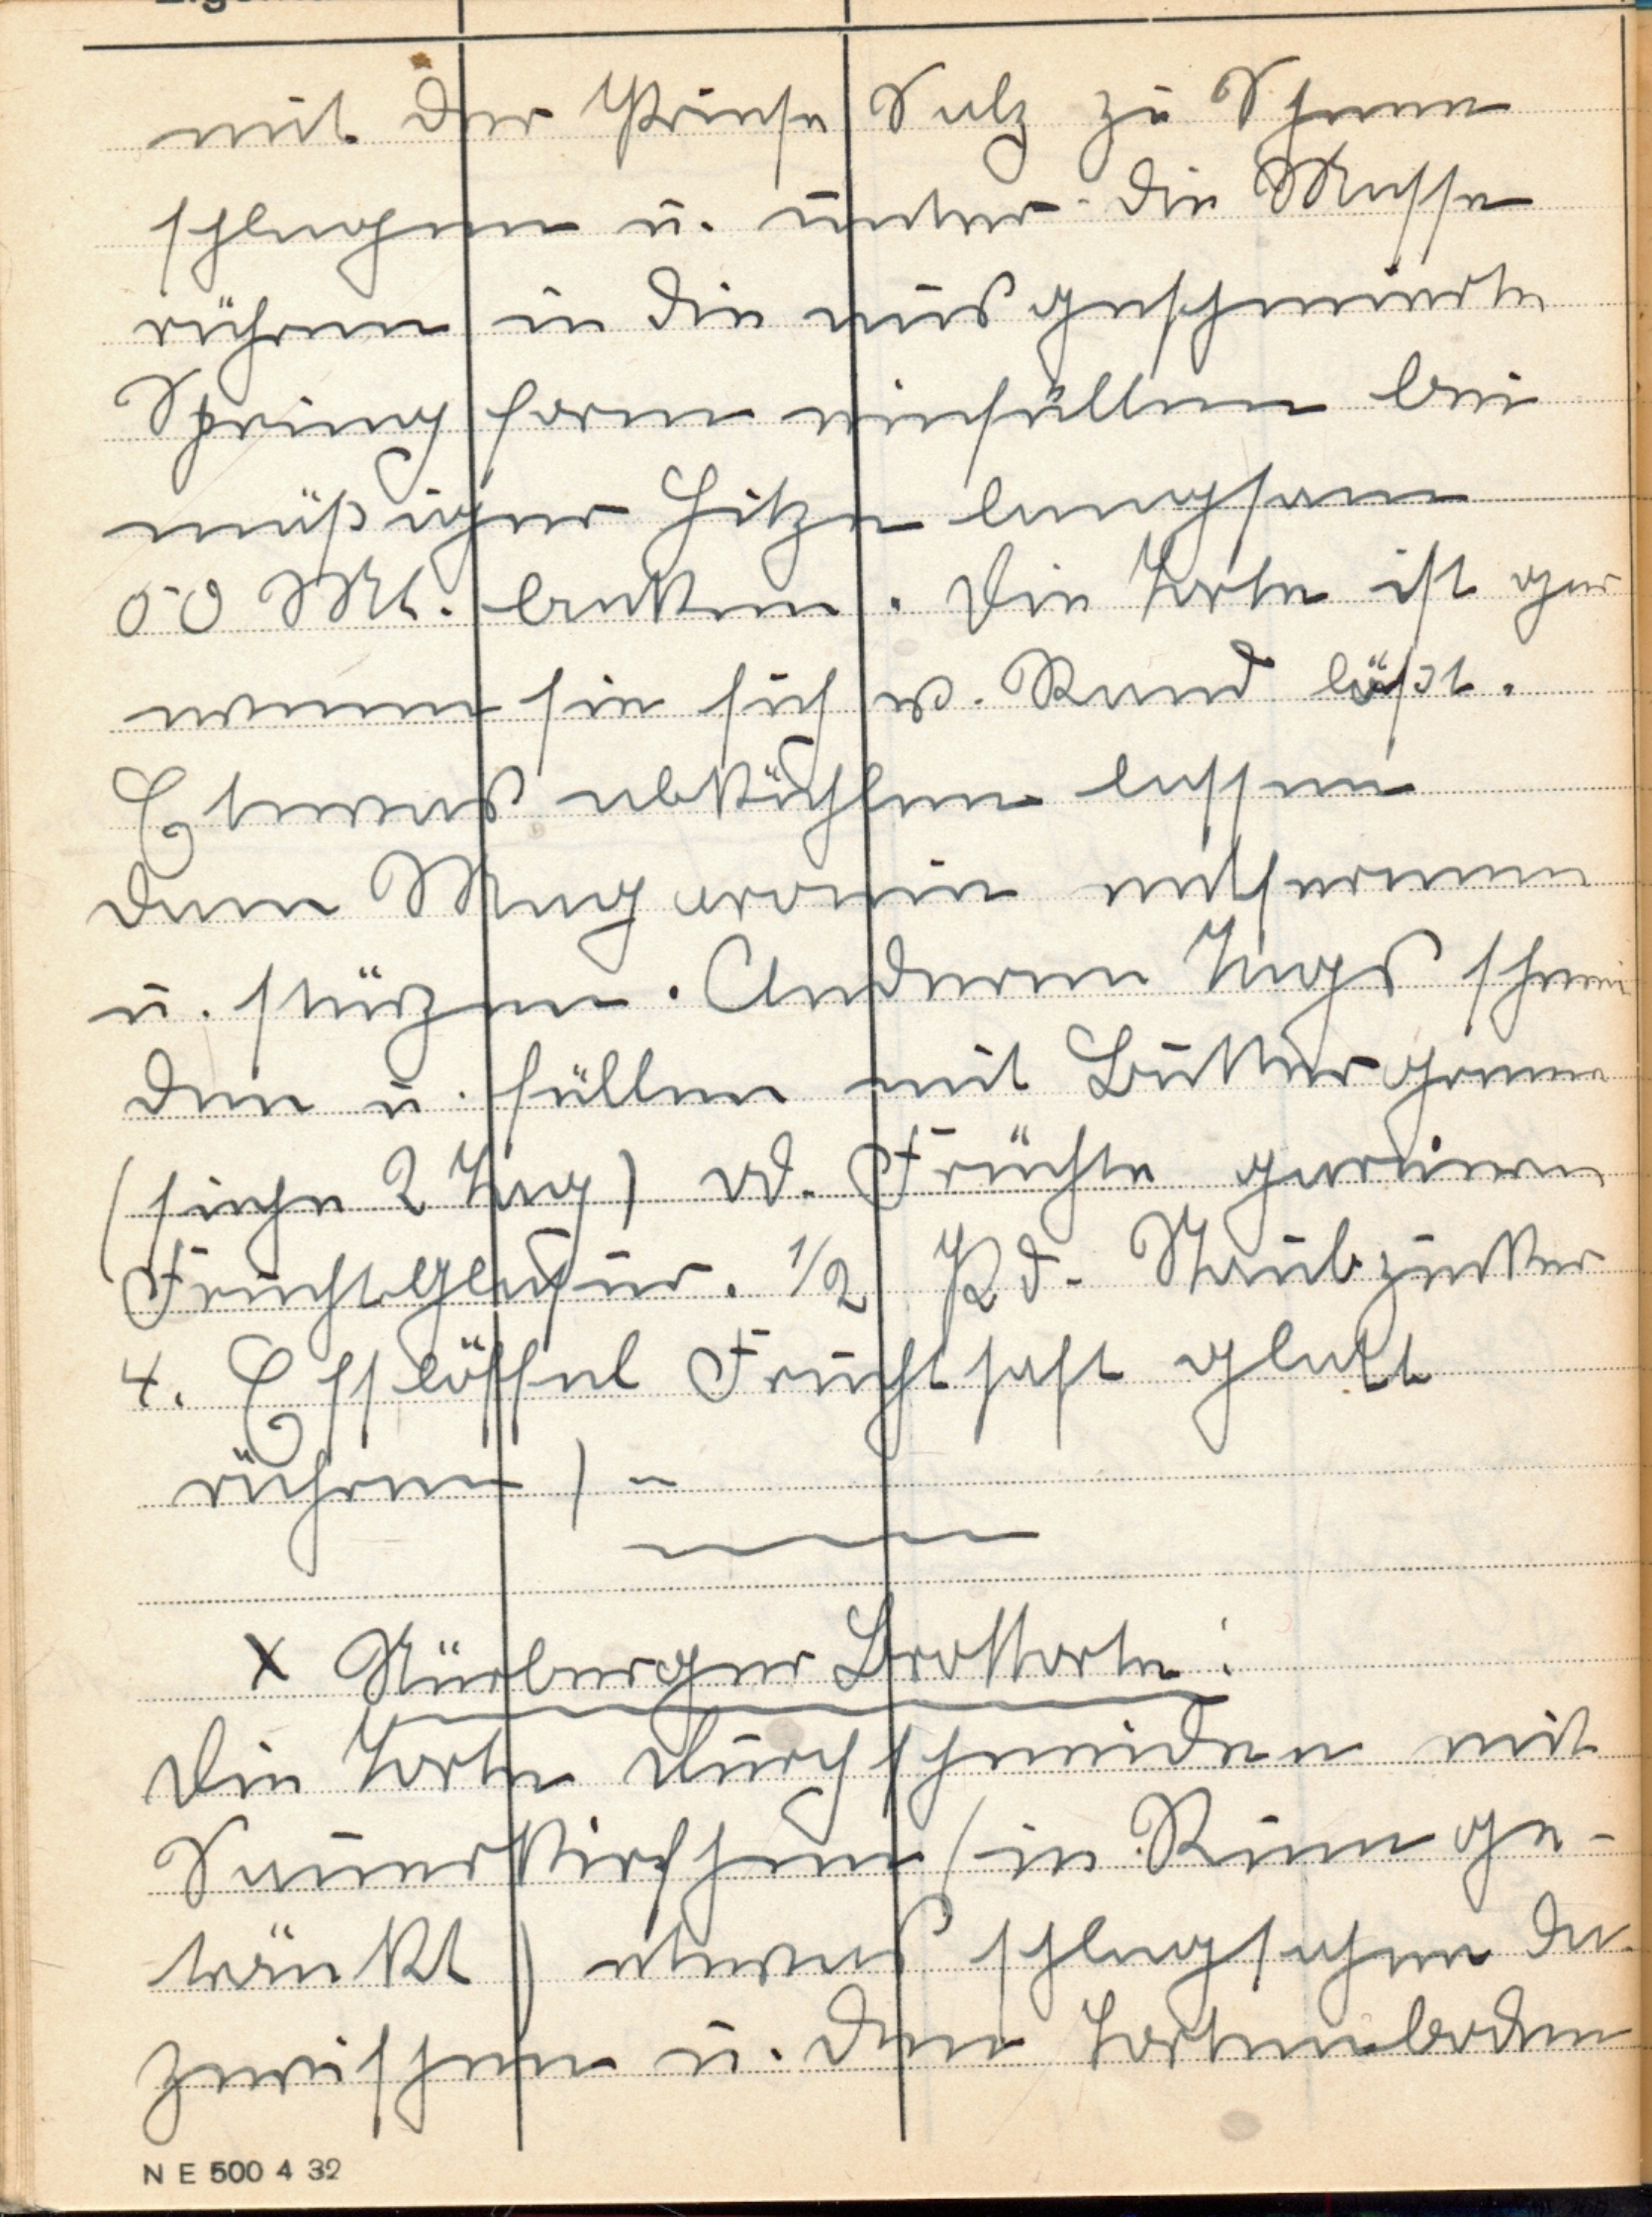 mit der Prinse Salz zu Schnee
schlagen u. unter die Masse
rühren in die ausgeschmierte
Spring form einfüllen bei
mäßiger Hitze langsam
50 Mt. backen. Die Torte ist gar
wenn sie sich v. Rand läßt.
Etwas abkühlen lassen
dann entfernen
u. stürzen. Anderen Tags schnei
den u. füllen mit Buttergreme
(siehe 2 Tag) od. Früchte garnieren
Fruchtglasur. 1/2 Pd. Staubzucker
4. Esslöffel Fruchtsaft glatt
rühren) -
x Nürberger Brottorte:
Die Torte durchschneiden mit
Sauerkirschen (in Rum ge-
tränkt) etwas schlagsahne da
zwischen u. den Tortenboden
N E 500 4 32